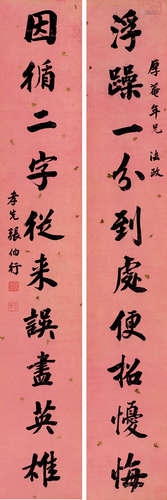 厚菴年兄 法政
浮躁一分到處便招憂悔
因循二字從来誤盡英雄
孝先張伯行